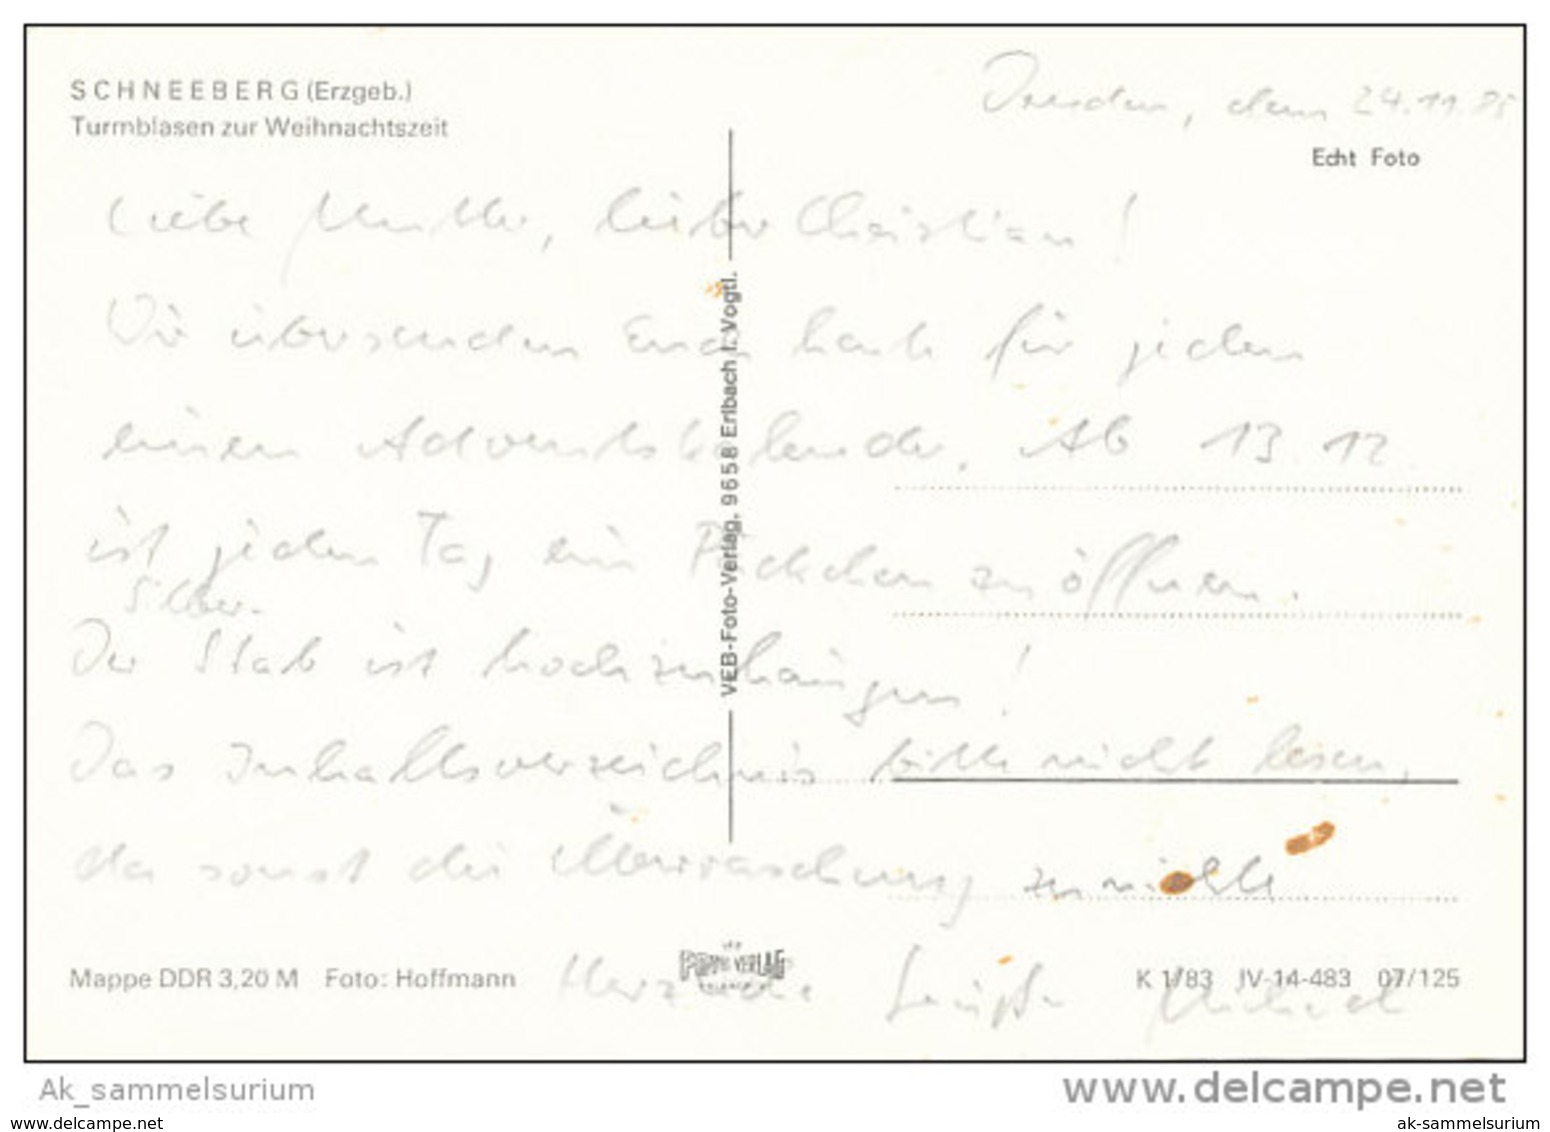 SCHNEEBERG (Erzgeb.)
Turmblasen zur Weihnachtszeit
Dresden, den 24.11.85
Echt Foto
Liebe Mutter, lieber Christian!
Wir übersenden Euch heute für jeden
einen Adventskalender. Ab 13.12.
ist jeden Tag ein Päckchen zu öffnen.
Silber-
Der Stab ist hochzuhängen!
Das Inhaltsverzeichnis bitte nicht lesen,
da sonst die Überraschung zunichte
Herzliche Grüße Michael
VEB-Foto-Verlag, 9658 Erlbach i. Vogtl.
Mappe DDR 3,20 M Foto: Hoffmann
VERLAG
K 1/83 JV-14-483 07/125
Ak_sammelsurium
www.delcampe.net
www.delcampe.net
ak-sammelsurium